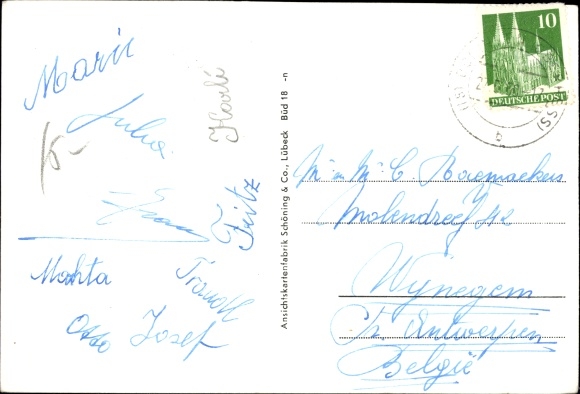 Marii
Julia
Karli
Franz
Fritz
Martha
Traudl
Otto Josef
Ansichtskartenfabrik Schöning & Co., Lübeck Büd 18 -n
10
DEUTSCHE POST
b
M. en Mme C. Raeymaekers
Molendreef 42
Wijnegem
Pr. Antwerpen
België